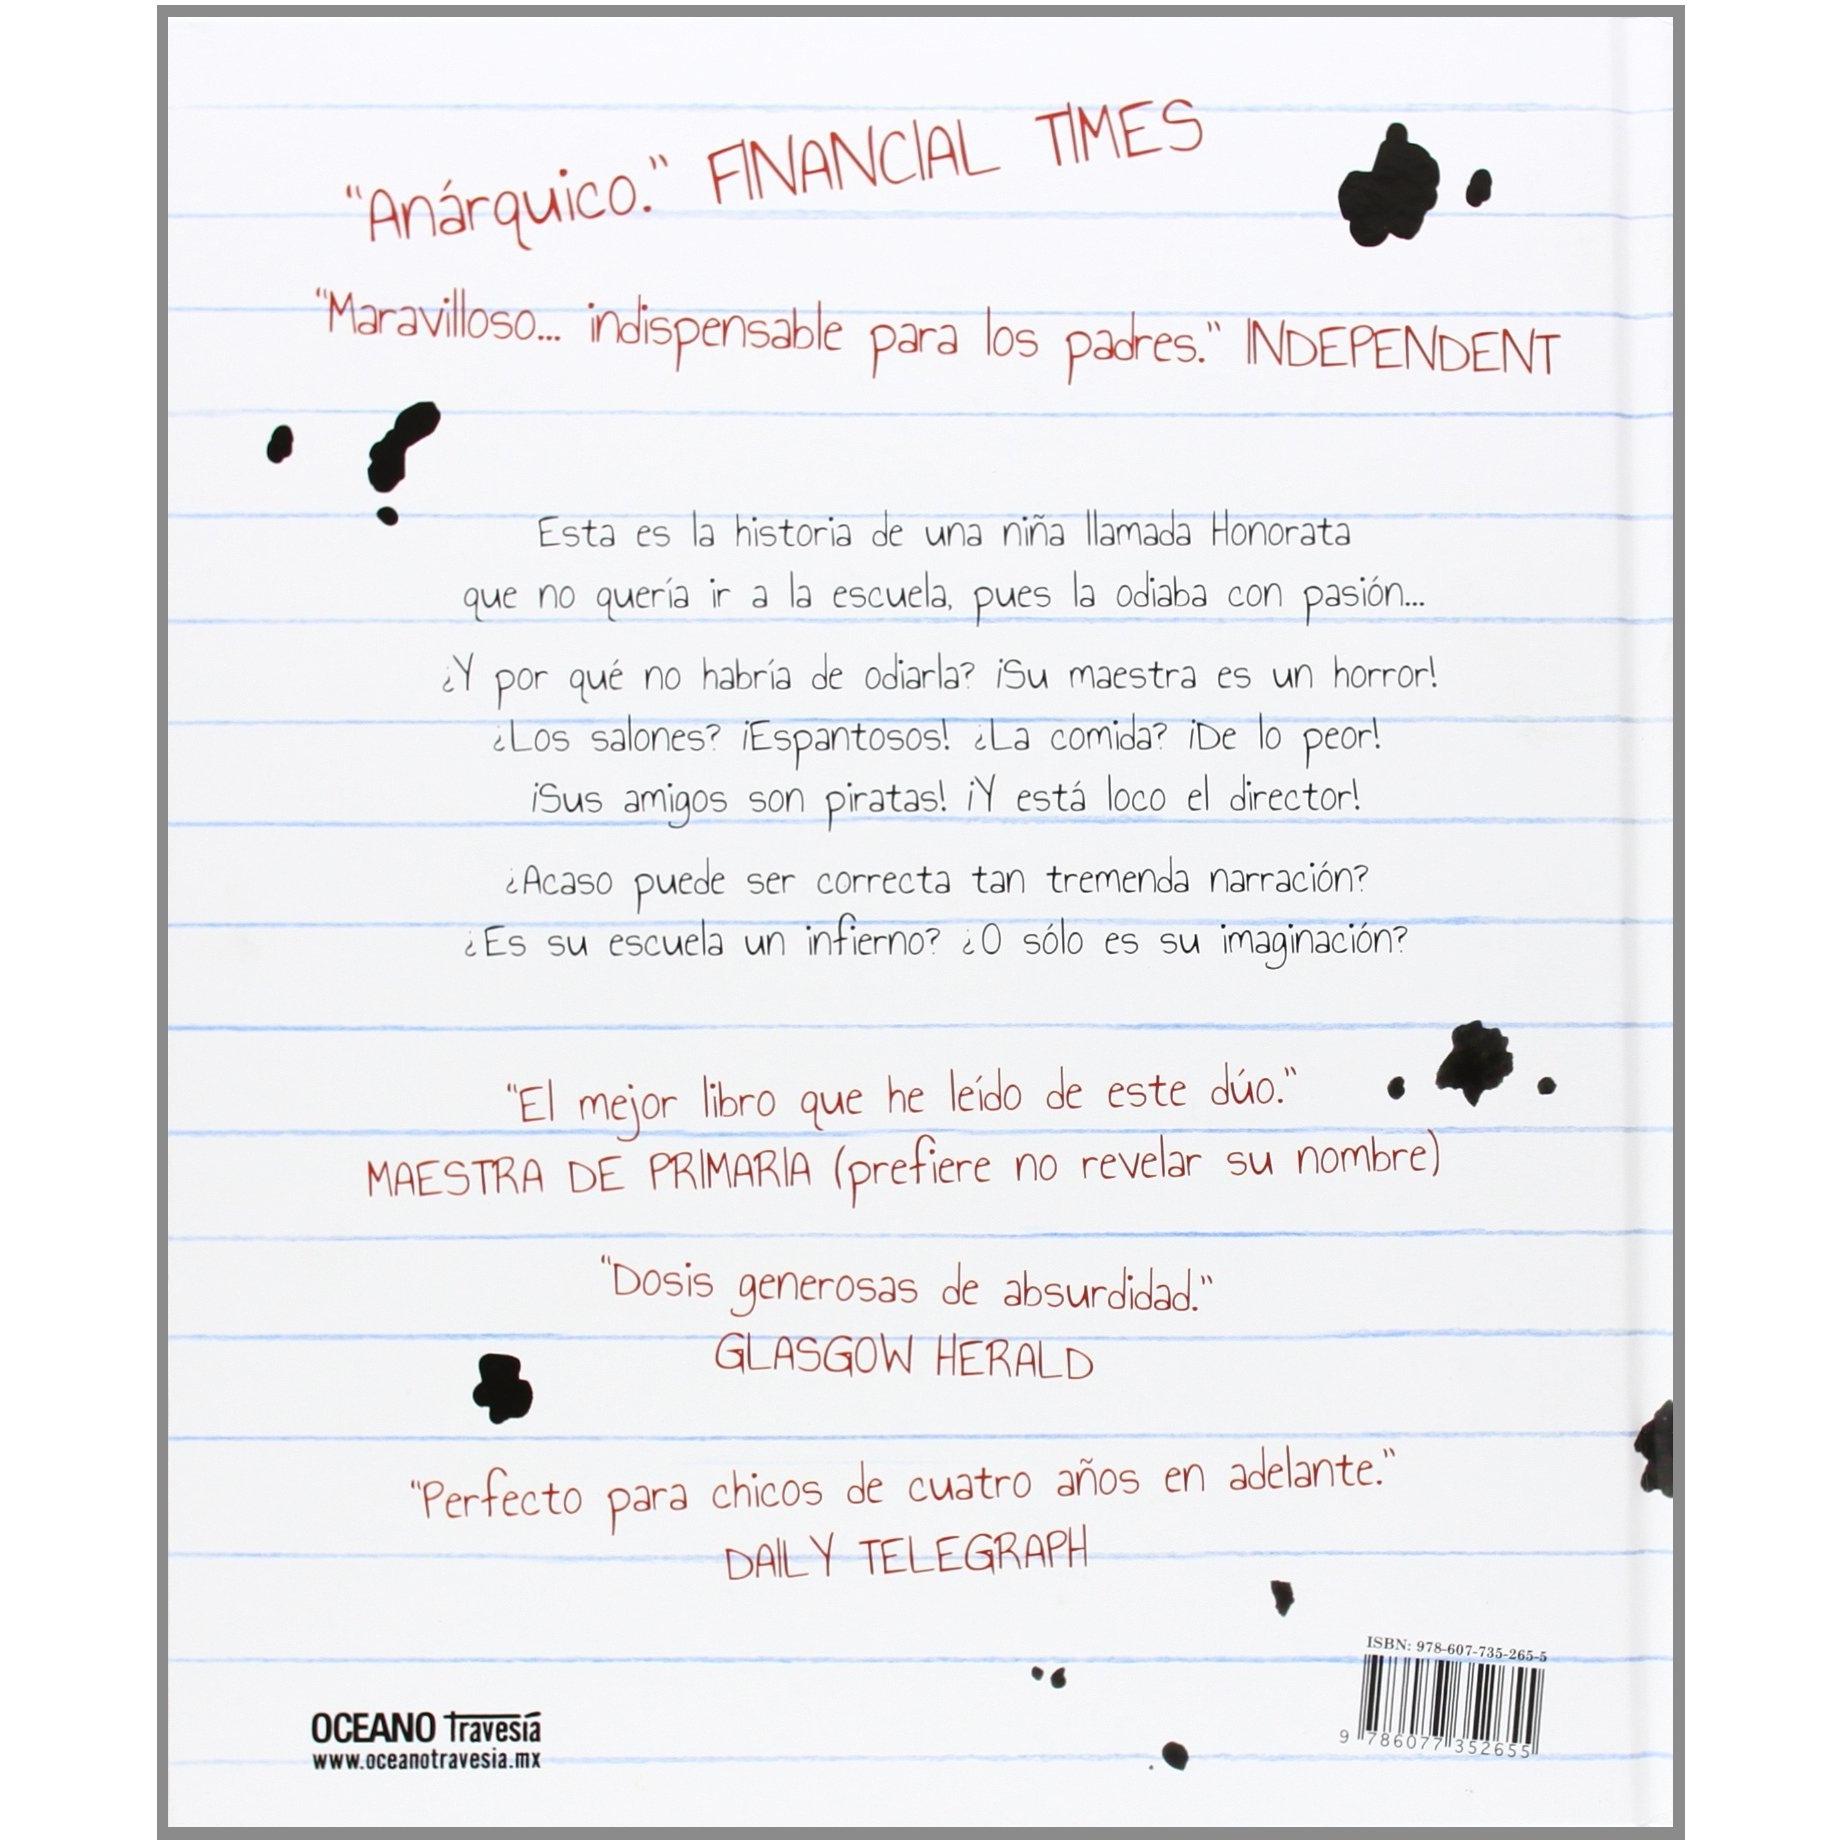 "Anárquico." FINANCIAL TIMES
"Maravilloso... indispensable para los padres." INDEPENDENT
Esta es la historia de una niña llamada Honorata
que no quería ir a la escuela, pues la odiaba con pasión...
¿Y por qué no habría de odiarla? ¡Su maestra es un horror!
¿Los salones? ¡Espantosos! ¿La comida? ¡De lo peor!
¡Sus amigos son piratas! ¡Y está loco el director!
¿Acaso puede ser correcta tan tremenda narración?
¿Es su escuela un infierno? ¿O sólo es su imaginación?
"El mejor libro que he leído de este dúo."
MAESTRA DE PRIMARIA (prefiere no revelar su nombre)
"Dosis generosas de absurdidad."
GLASGOW HERALD
"Perfecto para chicos de cuatro años en adelante."
DAILY TELEGRAPH
ISBN: 978-607-735-265-5
9 786077 352655
OCEANO Travesía
www.oceanotravesia.mx